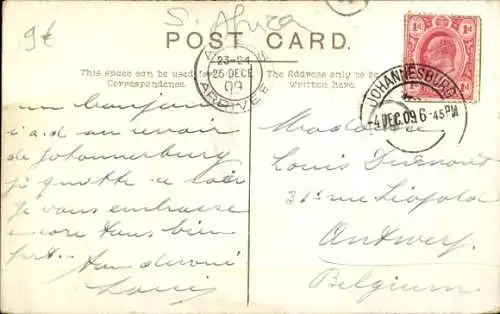 9€
S. Africa
POST CARD.
This space can be used for
Correspondence.
The Address only to be
written here.
23-24
25 DECE
09
ARRIVÉE
JOHANNESBURG
4 DEC. 09 6-45PM
1d 1d
un bonjour
i.a.d au revoir
de Johannesburg
je quitte ce soir
je vous embrasse
encore tous bien
fort.
Louis
Madame
Louis
21 rue Léopold
Antwerp
Belgium